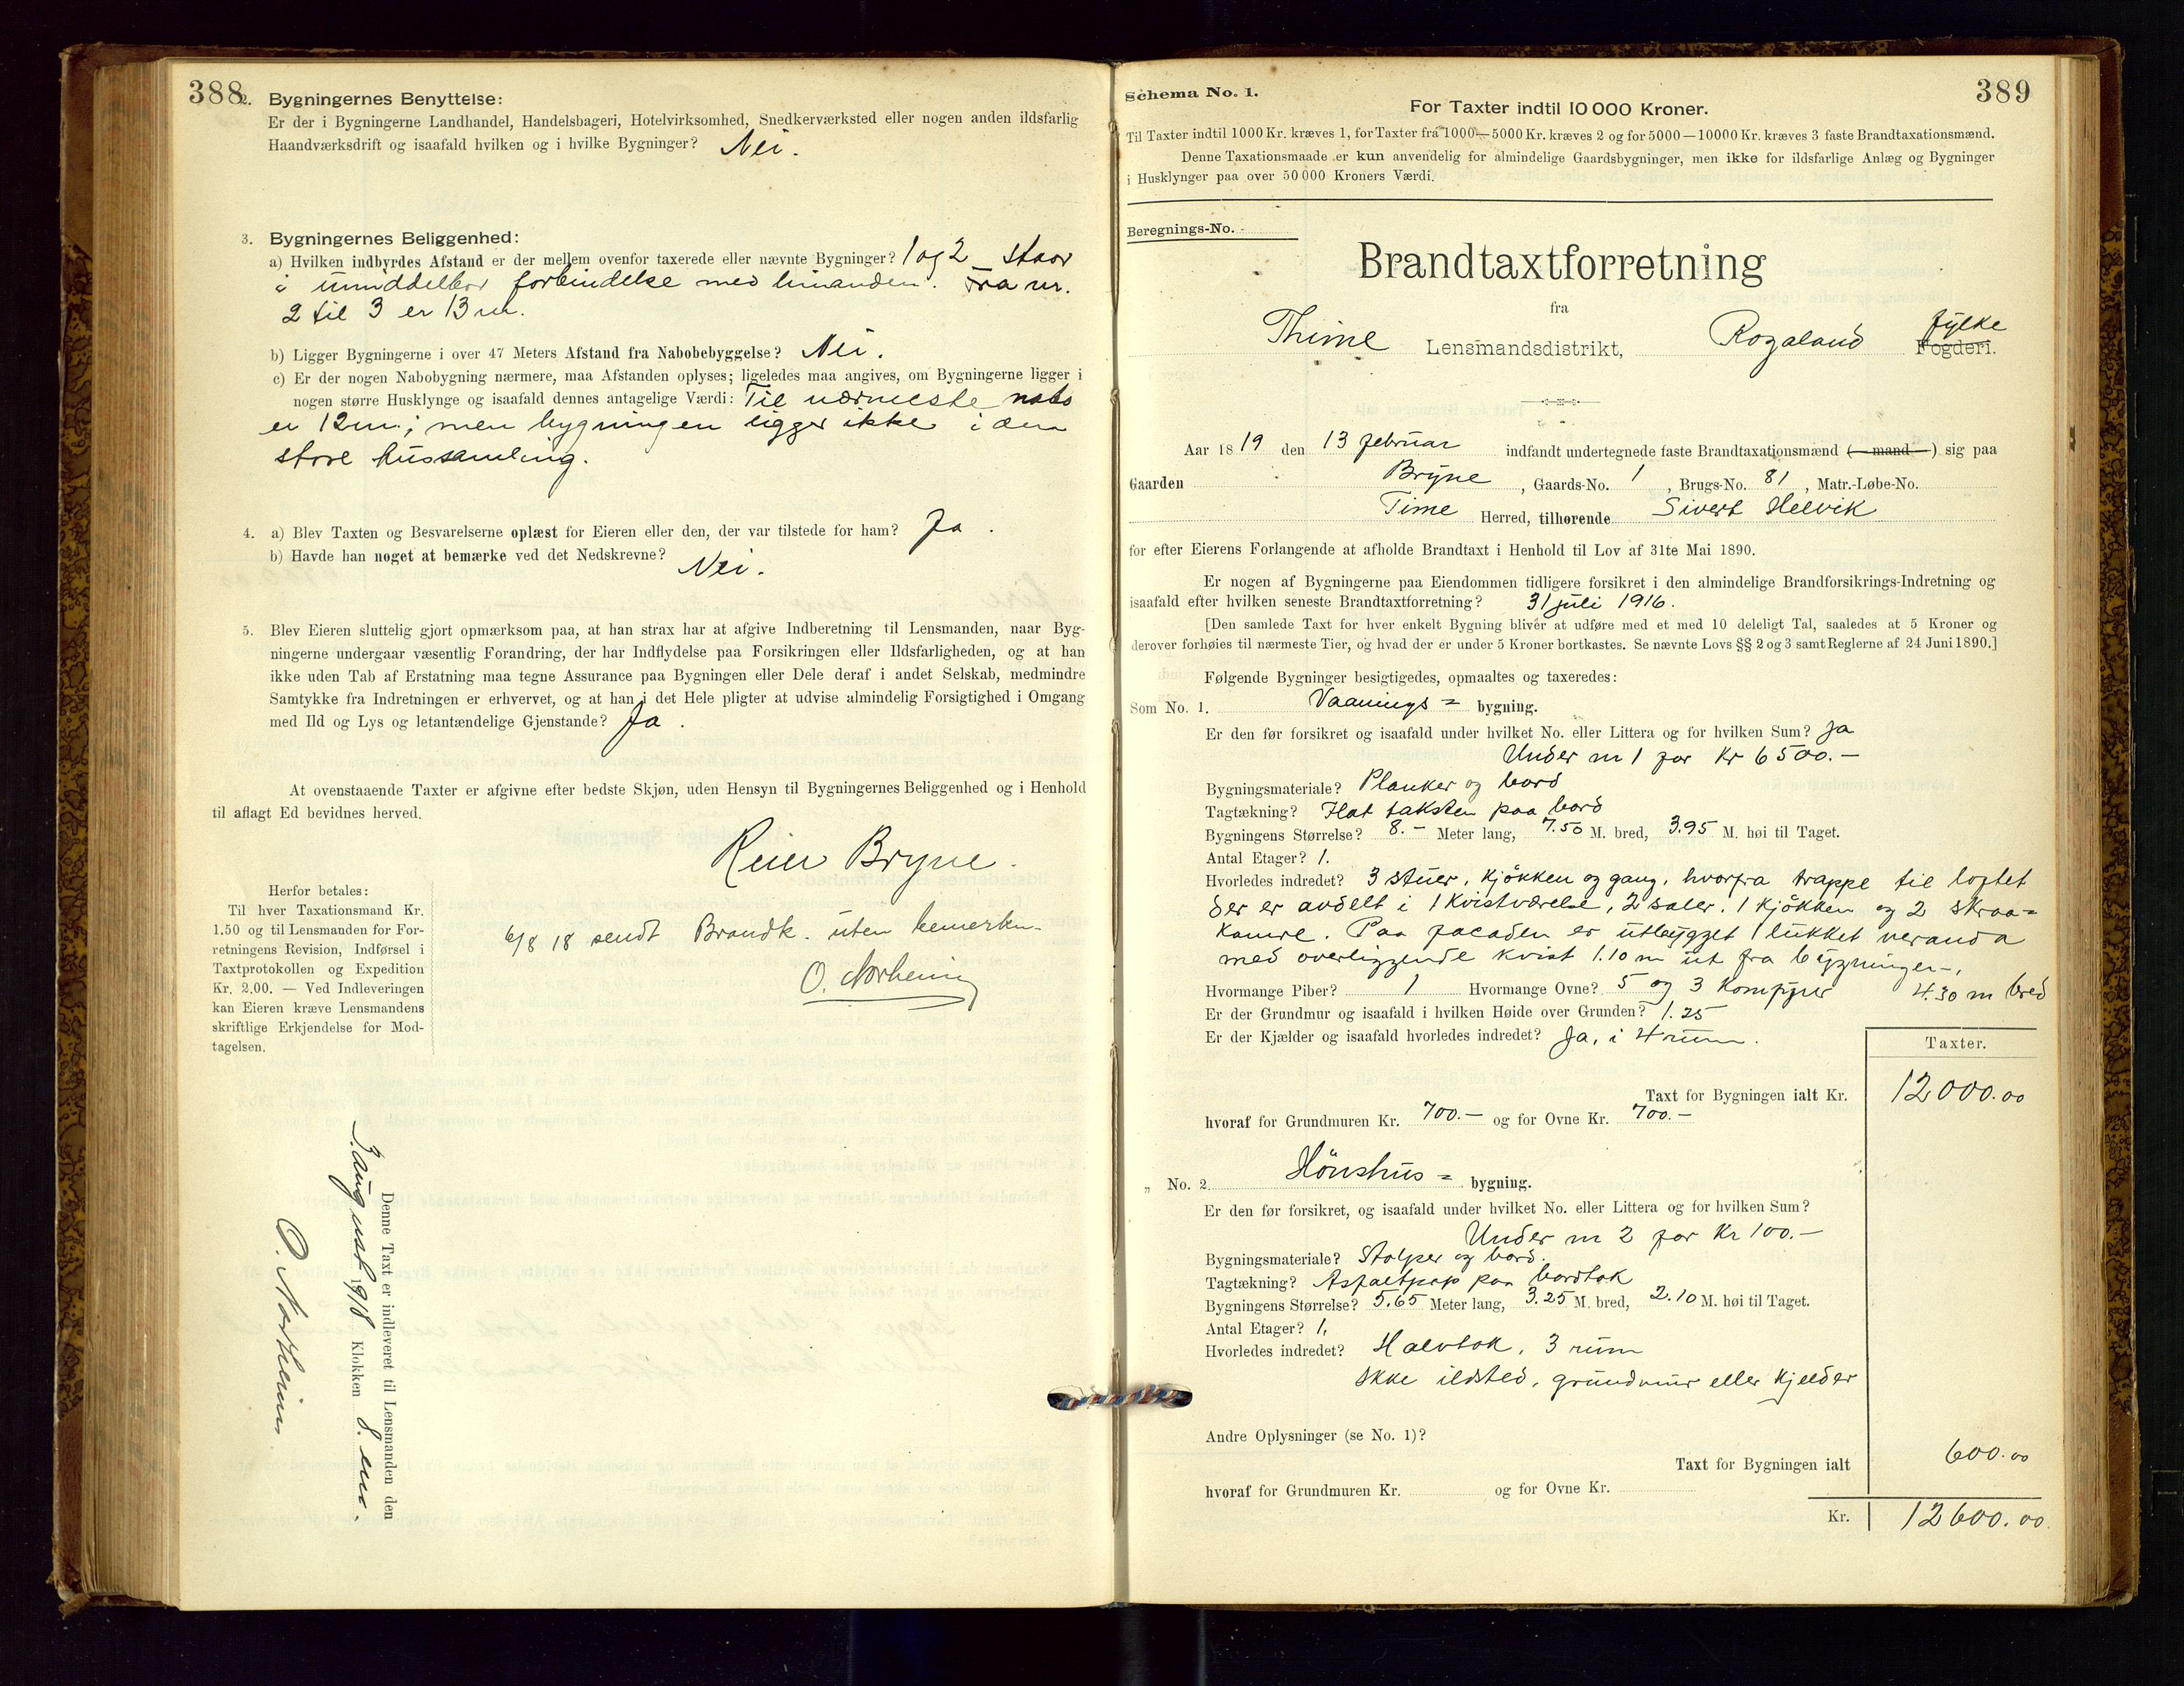 388
2. Bygningernes Benyttelse:
Er der i Bygningerne Landhandel, Handelsbageri, Hotelvirksomhed, Snedkerværksted eller nogen anden ildsfarlig
Haandværksdrift og isaafald hvilken og i hvilke Bygninger? Nei.
3. Bygningernes Beliggenhed:
a) Hvilken indbyrdes Afstand er der mellem ovenfor taxerede eller nævnte Bygninger? 1 og 2 staar
i umiddelbar forbindelse med hinanden. Fra nr.
2 til 3 er 13 m.
b) Ligger Bygningerne i over 47 Meters Afstand fra Nabobebyggelse? Nei.
c) Er der nogen Nabobygning nærmere, maa Afstanden oplyses; ligeledes maa angives, om Bygningerne ligger i
nogen større Husklynge og isaafald dennes antagelige Værdi: Til nærmeste nabo
er 12 m; men bygningen ligger ikke i den
store hussamling.
4. a) Blev Taxten og Besvarelserne oplæst for Eieren eller den, der var tilstede for ham? Ja.
b) Havde han noget at bemærke ved det Nedskrevne? Nei.
5. Blev Eieren sluttelig gjort opmærksom paa, at han strax har at afgive Indberetning til Lensmanden, naar Byg-
ningerne undergaar væsentlig Forandring, der har Indflydelse paa Forsikringen eller Ildsfarligheden, og at han
ikke uden Tab af Erstatning maa tegne Assurance paa Bygningen eller Dele deraf i andet Selskab, medmindre
Samtykke fra Indretningen er erhvervet, og at han i det Hele pligter at udvise almindelig Forsigtighed i Omgang
med Ild og Lys og letantændelige Gjenstande? Ja.
At ovenstaaende Taxter er afgivne efter bedste Skjøn, uden Hensyn til Bygningernes Beliggenhed og i Henhold
til aflagt Ed bevidnes herved.
Reier Bryne.
Herfor betales:
Til hver Taxationsmand Kr.
1.50 og til Lensmanden for For-
retningens Revision, Indførsel i
Taxtprotokollen og Expedition
Kr. 2.00. — Ved Indleveringen
kan Eieren kræve Lensmandens
skriftlige Erkjendelse for Mod-
tagelsen.
6/8 18 sendt Brandk. uten bemerkn.
O. Norheim
Denne Taxt er indleveret til Lensmanden den
3. august 1918 Klokken 8. em.
O. Norheim
389
Schema No. 1.
For Taxter indtil 10 000 Kroner.
Til Taxter indtil 1000 Kr. kræves 1, for Taxter fra 1000—5000 Kr. kræves 2 og for 5000—10000 Kr. kræves 3 faste Brandtaxationsmænd.
Denne Taxationsmaade er kun anvendelig for almindelige Gaardsbygninger, men ikke for ildsfarlige Anlæg og Bygninger
i Husklynger paa over 50 000 Kroners Værdi.
Beregnings-No.
Brandtaxtforretning
fra
Thime Lensmandsdistrikt, Rogaland Fogderi. fylke
Aar 1819 den 13 februar indfandt undertegnede faste Brandtaxationsmænd (—mand—) sig paa
Gaarden Bryne, Gaards-No. 1, Brugs-No. 81, Matr.-Løbe-No.
Time Herred, tilhørende Sivert Helvik
for efter Eierens Forlangende at afholde Brandtaxt i Henhold til Lov af 31te Mai 1890.
Er nogen af Bygningerne paa Eiendommen tidligere forsikret i den almindelige Brandforsikrings-Indretning og
isaafald efter hvilken seneste Brandtaxtforretning? 31 juli 1916.
[Den samlede Taxt for hver enkelt Bygning bliver at udføre med et med 10 deleligt Tal, saaledes at 5 Kroner og
derover forhøies til nærmeste Tier, og hvad der er under 5 Kroner bortkastes. Se nævnte Lovs §§ 2 og 3 samt Reglerne af 24 Juni 1890.]
Følgende Bygninger besigtigedes, opmaaltes og taxeredes:
Som No. 1. Vaanings= bygning.
Er den før forsikret og isaafald under hvilket No. eller Littera og for hvilken Sum? Ja
Under nr 1 for Kr 6500.—
Bygningsmateriale? Planker og bord
Tagtækning? Flat taksten paa bord
Bygningens Størrelse? 8.— Meter lang, 7.50 M. bred, 3.95 M. høi til Taget.
Antal Etager? 1.
Hvorledes indredet? 3 stuer, kjøkken og gang, hvorfra trappe til loftet
der er avdelt i 1 kvistværelse, 2 saler. 1 kjøkken og 2 skraa=
kamre. Paa facaden er utbygget 1 lukket veranda
med overliggende kvist 1.10 m ut fra bygningen,
4.30 m bred
Hvormange Piber? 1 Hvormange Ovne? 5 og 3 komfyrer
Er der Grundmur og isaafald i hvilken Høide over Grunden? 1.25
Er der Kjælder og isaafald hvorledes indredet? Ja, i 4 rum.
Taxter.
Taxt for Bygningen ialt Kr. 12000.00
hvoraf for Grundmuren Kr. 700.— og for Ovne Kr. 700.—
„ No. 2. Hönshus= bygning.
Er den før forsikret, og isaafald under hvilket No. eller Littera og for hvilken Sum?
Under nr 2 for Kr 100.—
Bygningsmateriale? Stolper og bord.
Tagtækning? Asfaltpap paa bordtak
Bygningens Størrelse? 5.65 Meter lang, 3.25 M. bred, 2.10 M. høi til Taget.
Antal Etager? 1.
Hvorledes indredet? Halvtak. 3 rum
Ikke ildsted, grundmur eller kjelder
Andre Oplysninger (se No. 1)?
Taxt for Bygningen ialt 600.00
hvoraf for Grundmuren Kr. og for Ovne Kr.
Kr. 12600.00